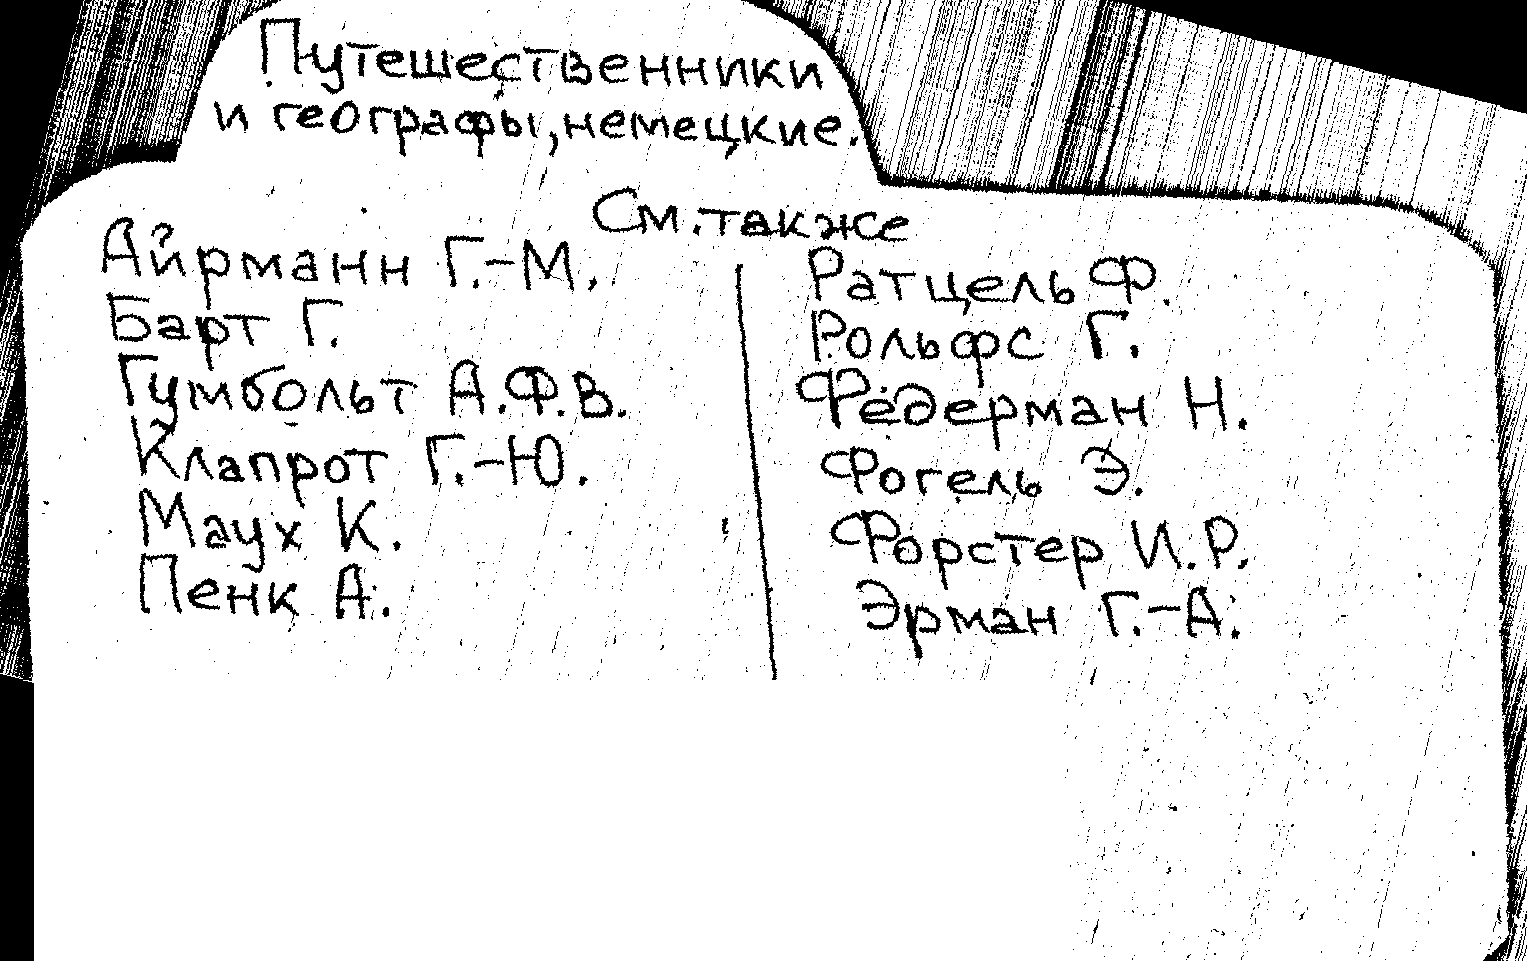 Путешественники
и географы, немецкие.
См. также
Айрманн Г.-М.
Барт Г.
Гумбольт А.Ф.В.
Клапрот Г.-Ю.
Маух К.
Пенк А.
Ратцель Ф.
Рольфс Г.
Федерман Н.
Фогель Э.
Форстер И.Р.
Эрман Г.-А.